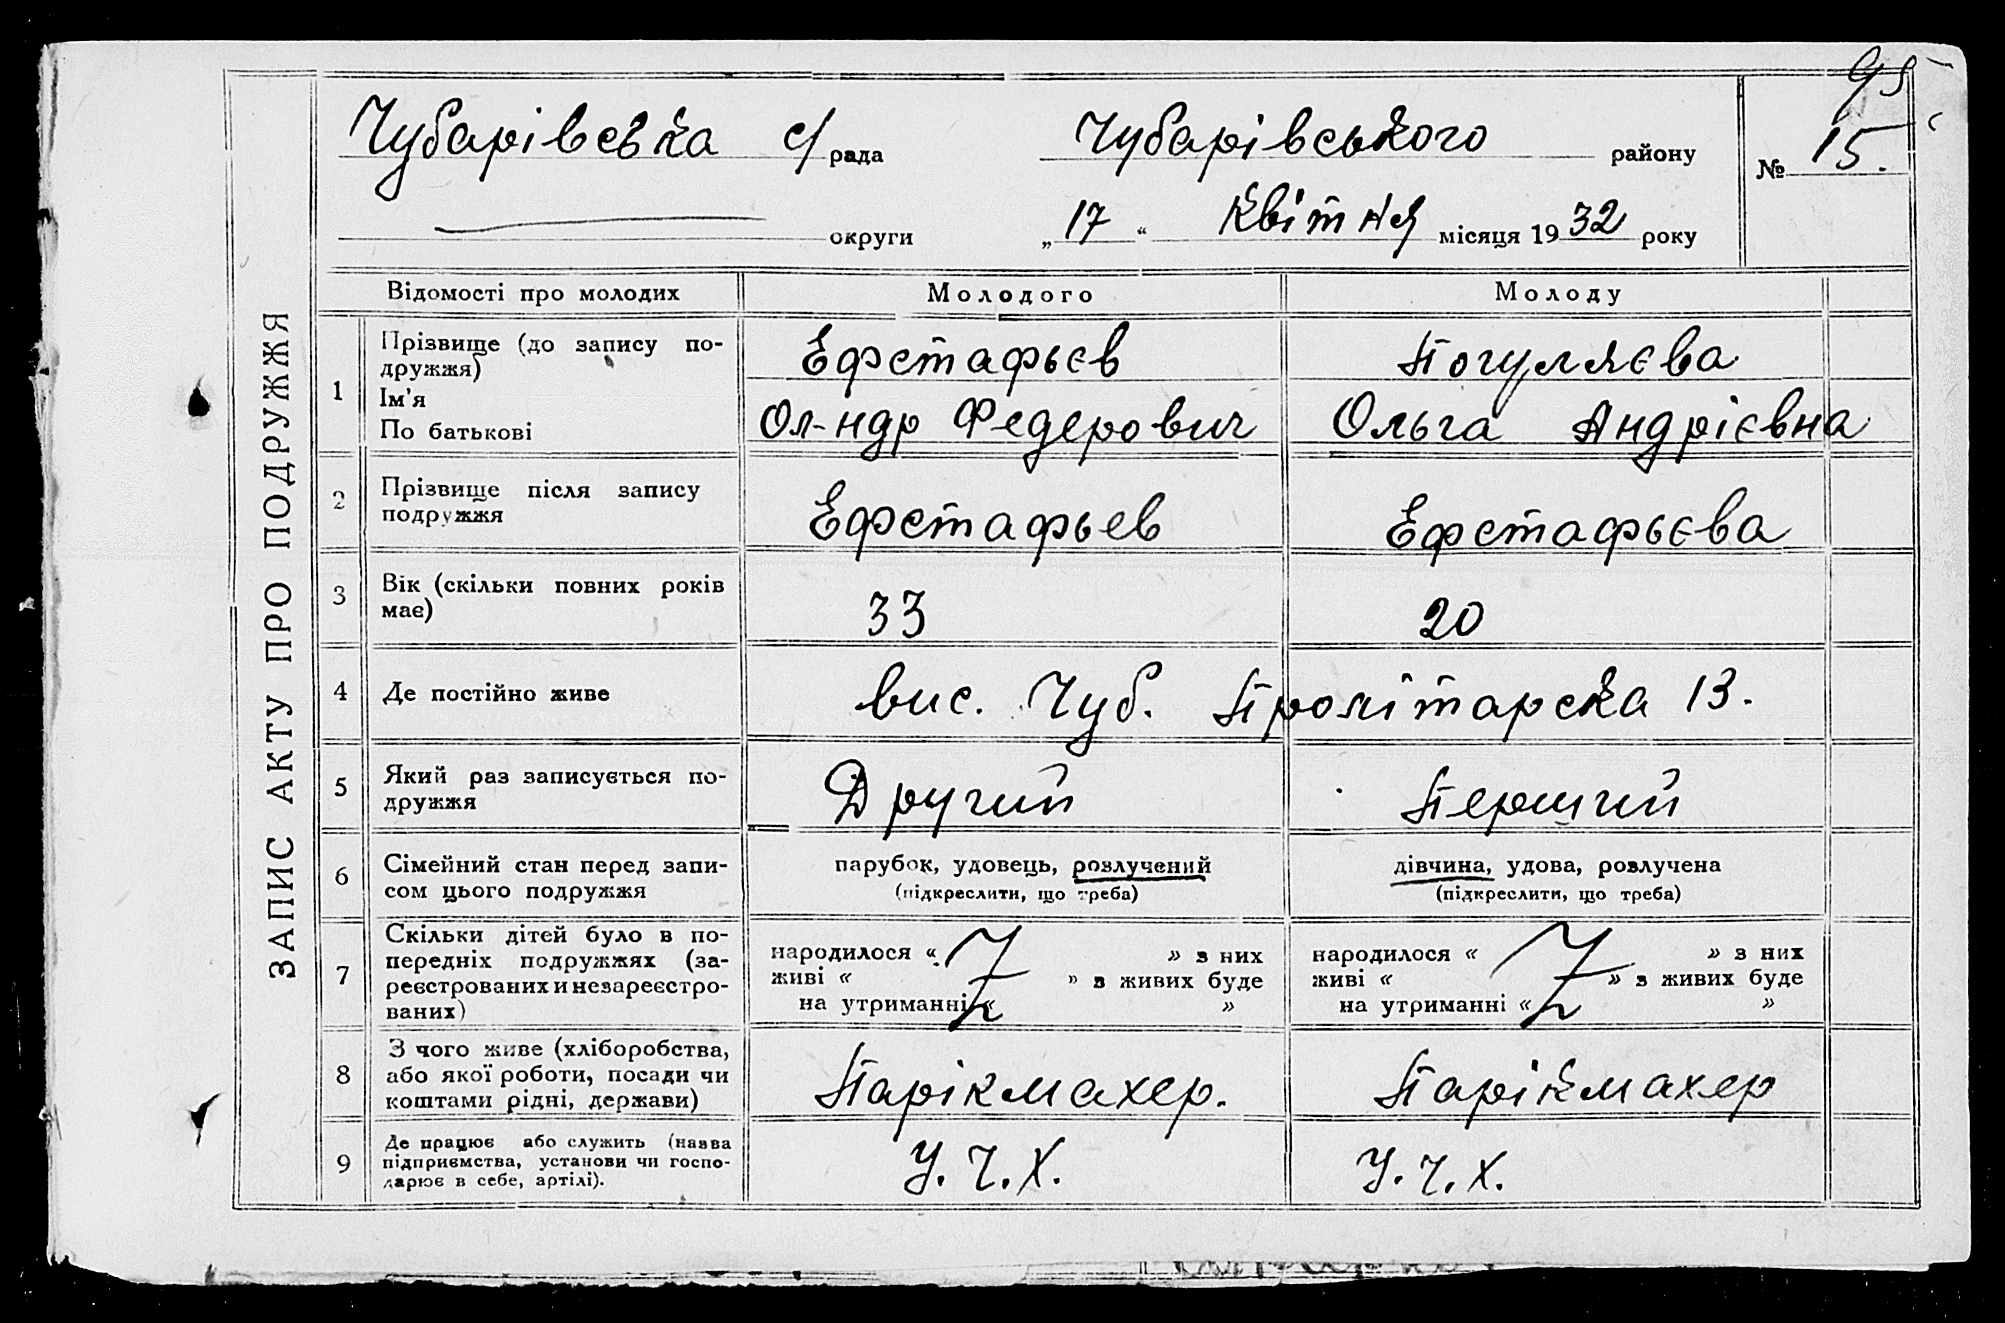 95
Чубарівська с/рада Чубарівського району № 15.
округи „17“ Квітня місяця 1932 року
ЗАПИС АКТУ ПРО ПОДРУЖЖЯ
Відомості про молодих Молодого Молоду
1 Прізвище (до запису по-
дружжя) Ефстафьєв Погуляєва
Ім'я
По батькові Ол-ндр Федерович Ольга Андрієвна
2 Прізвище після запису
подружжя Ефстафьев Ефстафьєва
3 Вік (скільки повних років
має) 33 20
4 Де постійно живе вис. Чуб. Пролітарска 13.
5 Який раз записується по-
дружжя Другий Перший
6 Сімейний стан перед запи- парубок, удовець, розлучений дівчина, удова, розлучена
сом цього подружжя (підкреслити, що треба) (підкреслити, що треба)
7 Скільки дітей було в по-
передніх подружжях (за-
реєстрованих и незареєстро-
ваних)
народилося « » з них
живі « » з живих буде
на утриманні « »
народилося « » з них
живі « » з живих буде
на утриманні « »
8 З чого живе (хліборобства,
або якої роботи, посади чи
коштами рідні, держави) Парікмахер. Парікмахер
9 Де працює або служить (назва
підприємства, установи чи госпо-
дарює в себе, артілі). У.Ч.Х. У.Ч.Х.